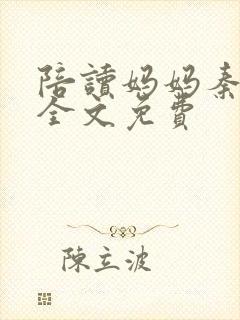 陪讀媽媽秦
全文免費
陳立波